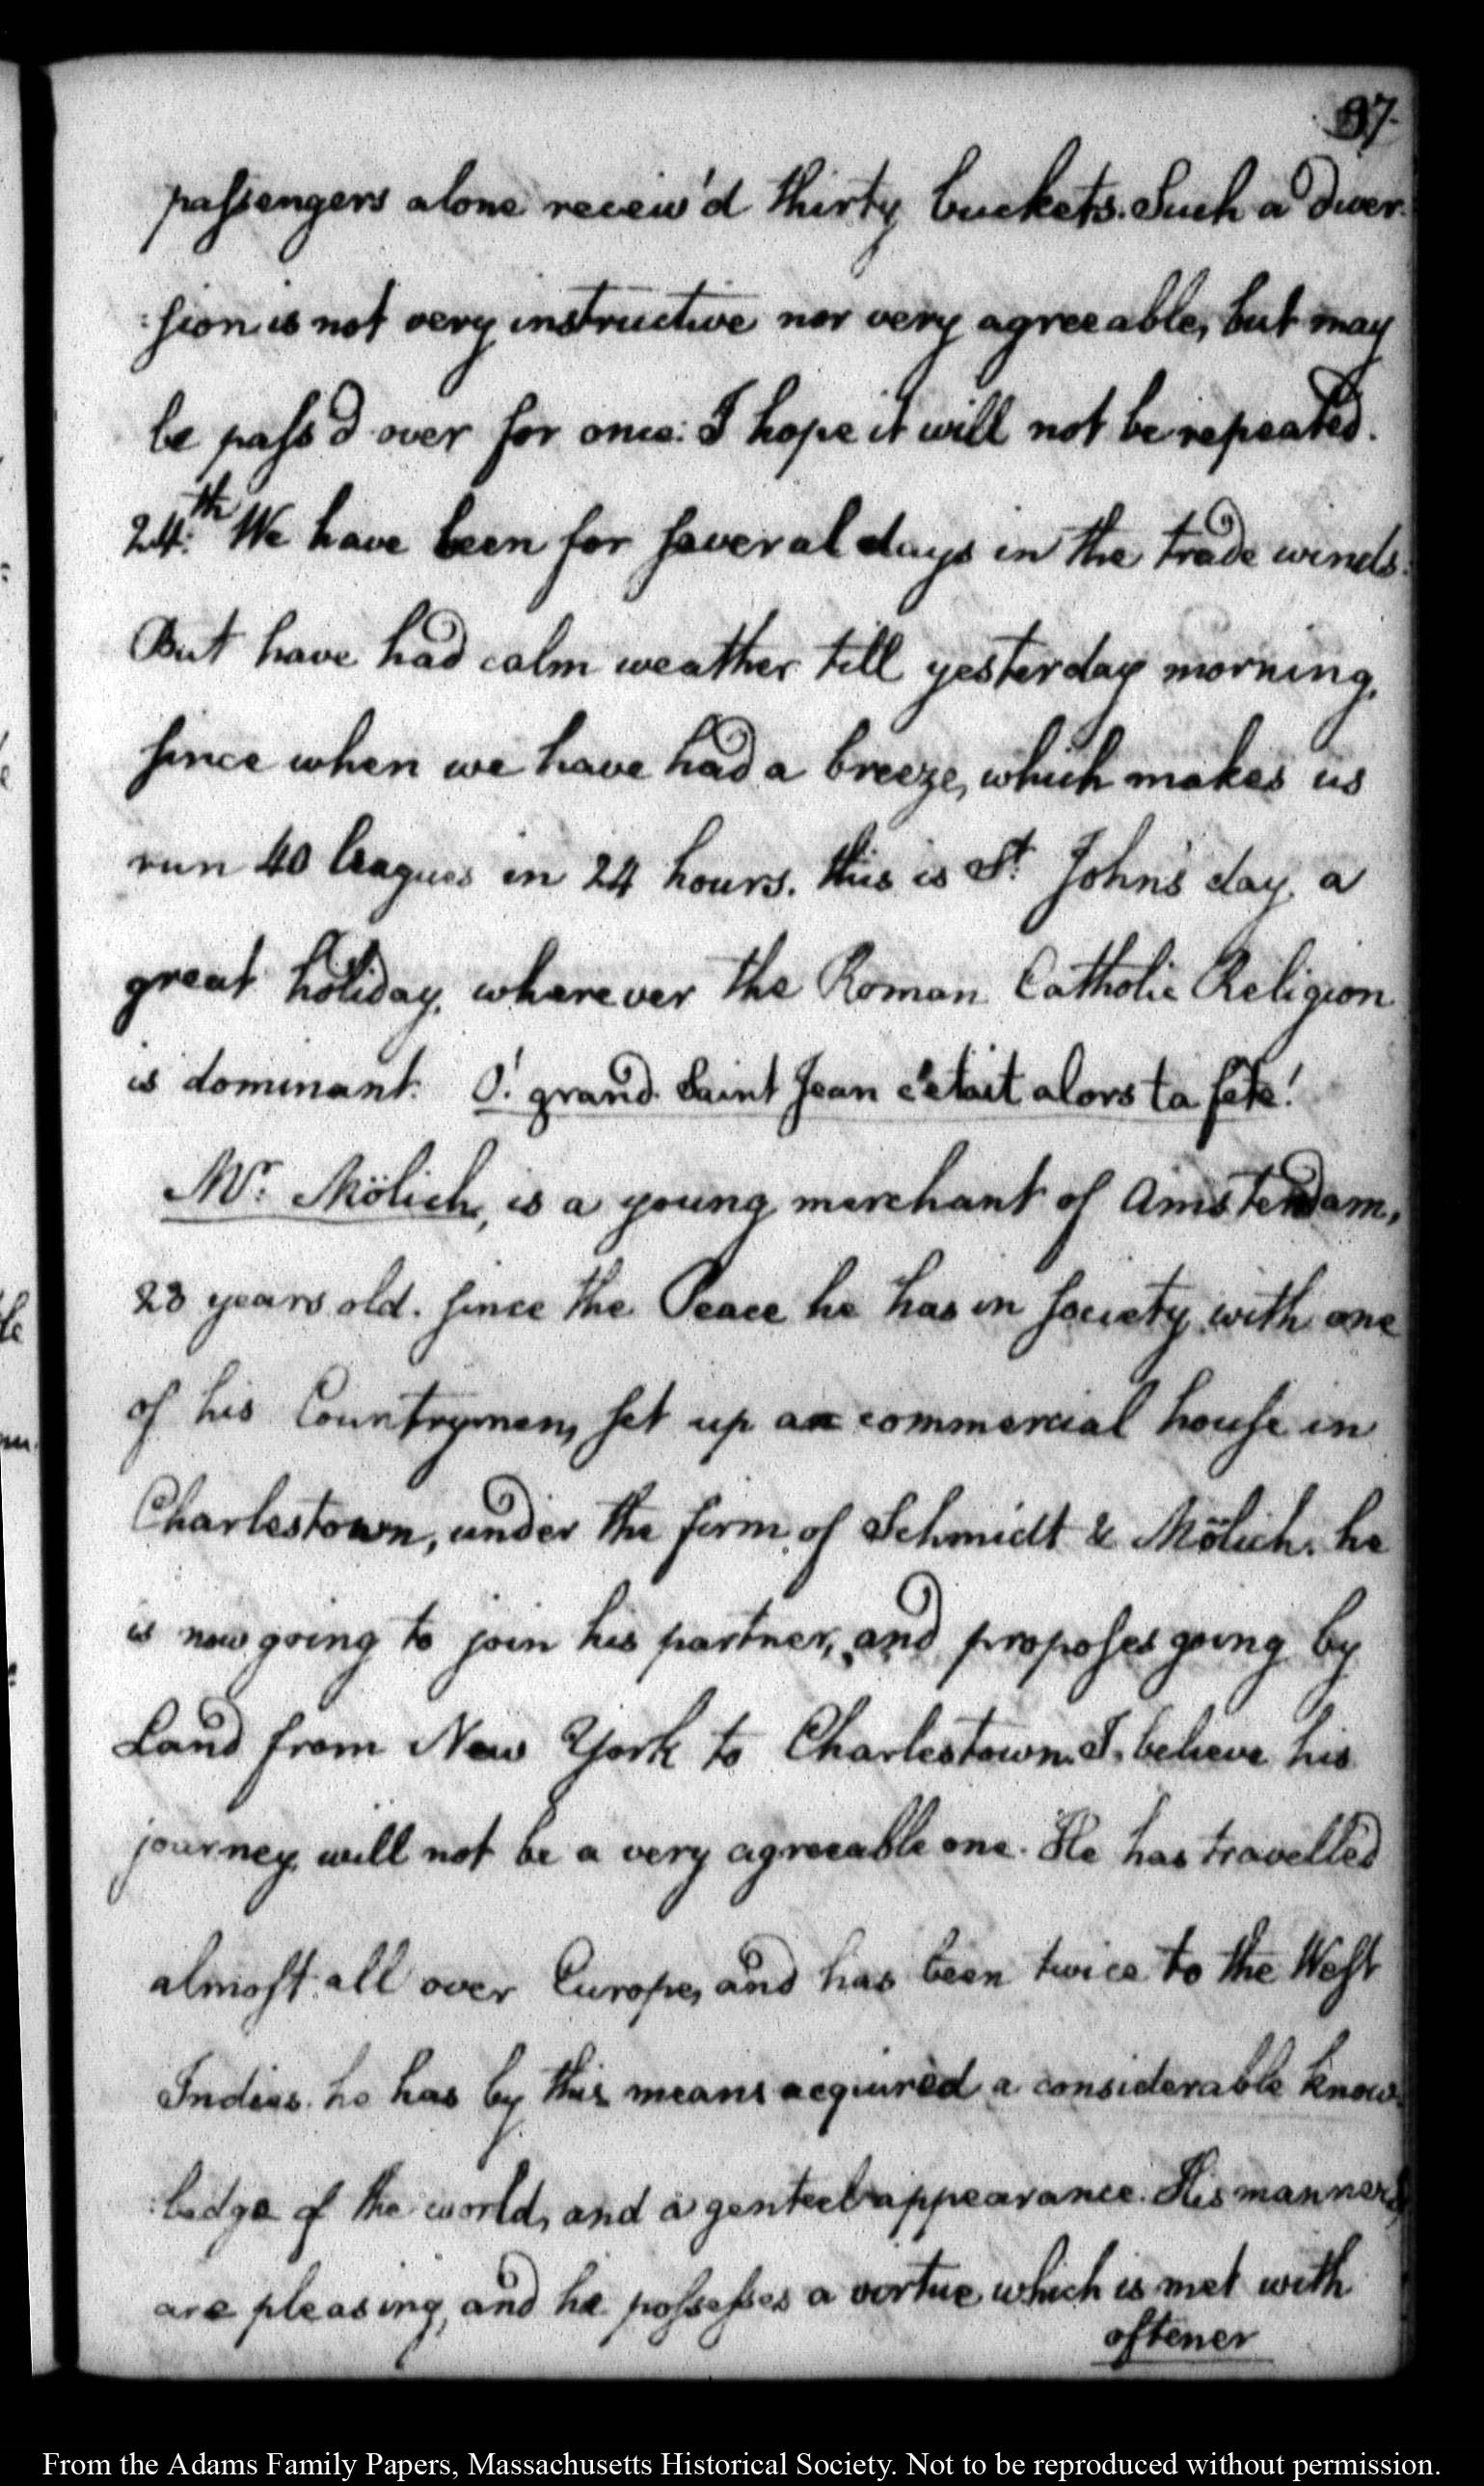 97.
passengers alone receiv'd thirty buckets. Such a diver-
:sion is not very instructive nor very agreeable, but may
be pass'd over for once: I hope it will not be repeated.
24.th We have been for several days in the trade winds:
But have had calm weather till yesterday morning,
since when we have had a breeze, which makes us
run 40 leagues in 24 hours. this is St. John's day, a
great holiday, wherever the Roman Catholic Religion
is dominant. O! grand Saint Jean c'etait alors ta fête!
Mr. Mölich, is a young merchant of Amsterdam,
23 years old. since the Peace he has in society with one
of his Countrymen, set up a commercial house in
Charlestown, under the firm of Schmidt & Mölich. he
is now going to join his partner, and proposes going by
Land from New York to Charlestown. I believe his
journey will not be a very agreeable one. He has travelled
almost all over Europe, and has been twice to the West
Indies. he has by this means acquired a considerable know-
:ledge of the world, and a genteel appearance. His manners,
are pleasing, and he possesses a vertue which is met with
oftener
From the Adams Family Papers, Massachusetts Historical Society. Not to be reproduced without permission.